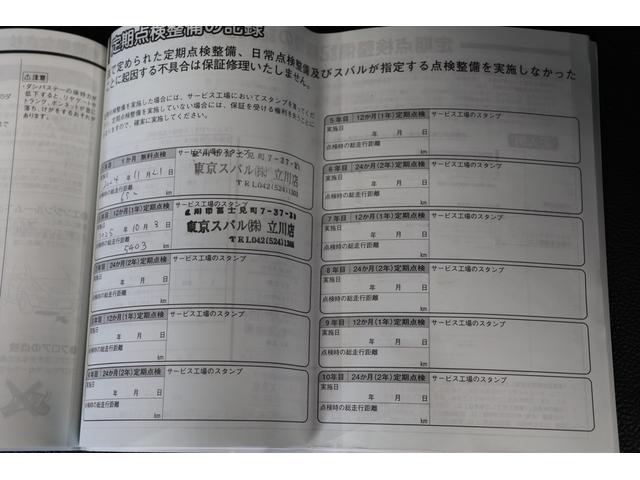 定期点検整備の記録
で定められた定期点検整備、日常点検整備及びスバルが指定する点検整備を実施しなかった
ことに起因する不具合は保証修理いたしません。
点検整備を実施した場合には、サービス工場においてスタンプを
定期点検整備を実施していない場合には、保証を受ける権利を
ますので、確実に実施してください。
⚠注意
1か月 無料点検
サービス工場のスタンプ
実施日
2024年11月21日
点検時の総走行距離
km
立川市富士見町7-37-21
東京スバル㈱ 立川店
TEL042(524)1368
12か月(1年)定期点検
サービス工場のスタンプ
実施日
2025年10月3日
点検時の総走行距離
5403 km
立川市富士見町7-37-21
東京スバル㈱ 立川店
TEL042(524)1368
年目 24か月(2年)定期点検
サービス工場のスタンプ
実施日
年 月 日
点検時の総走行距離
km
年目 12か月(1年)定期点検
サービス工場のスタンプ
実施日
年 月 日
点検時の総走行距離
km
年目 24か月(2年)定期点検
サービス工場のスタンプ
実施日
年 月 日
点検時の総走行距離
km
5年目 12か月(1年)定期点検
サービス工場のスタンプ
実施日
年 月 日
点検時の総走行距離
km
6年目 24か月(2年)定期点検
サービス工場のスタンプ
実施日
年 月 日
点検時の総走行距離
km
7年目 12か月(1年)定期点検
サービス工場のスタンプ
実施日
年 月 日
点検時の総走行距離
km
8年目 24か月(2年)定期点検
サービス工場のスタンプ
実施日
年 月 日
点検時の総走行距離
km
9年目 12か月(1年)定期点検
サービス工場のスタンプ
実施日
年 月 日
点検時の総走行距離
km
10年目 24か月(2年)定期点検
サービス工場のスタンプ
実施日
年 月 日
点検時の総走行距離
km